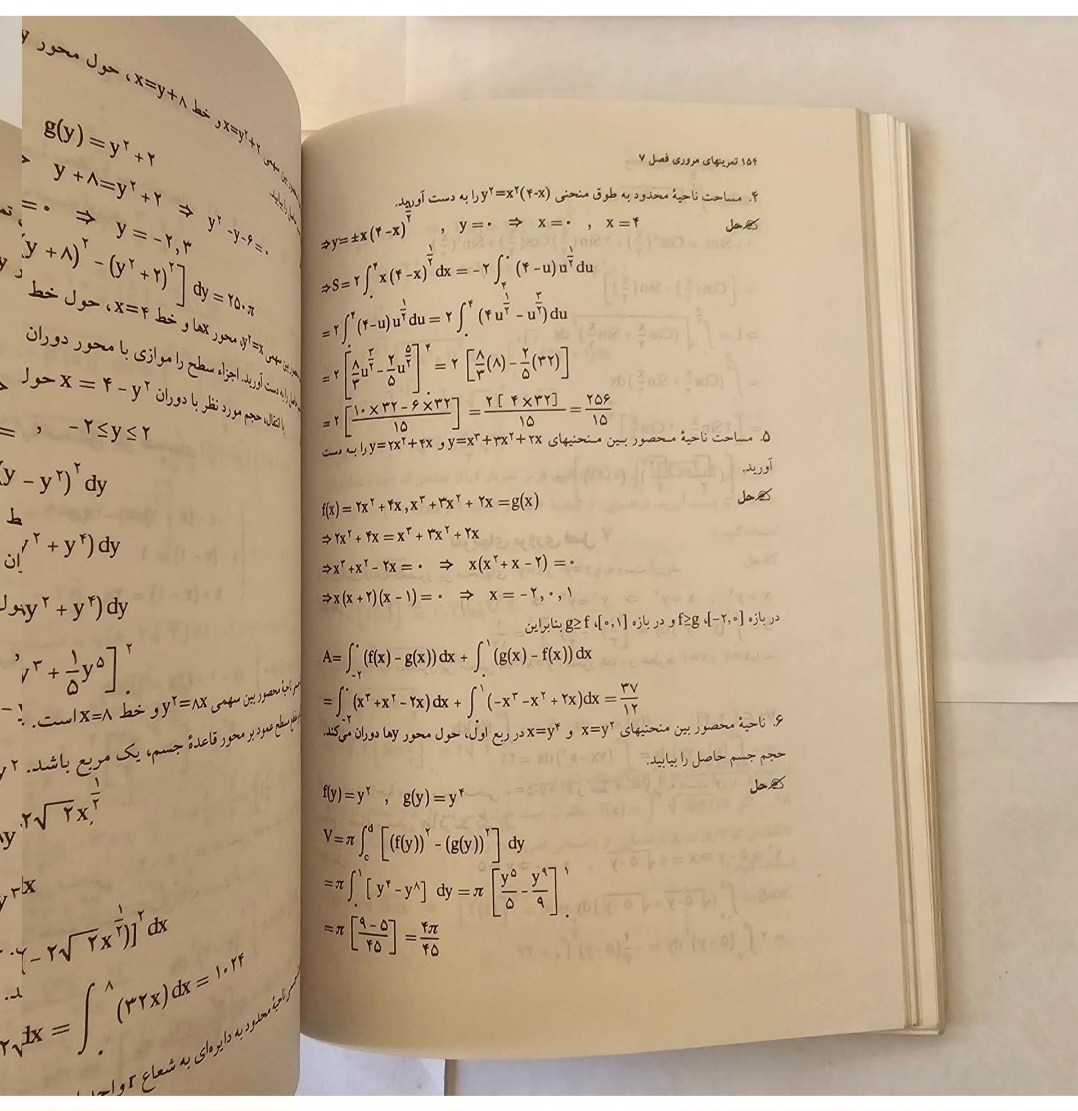 ۱۵۴ تمرینهای مروری فصل ۷
۴. مساحت ناحیهٔ محدود به طوق منحنی y²=x²(۴-x) را به دست آورید.
حل
⇒y=±x(۴-x)^(۱/۲) , y=۰ ⇒ x=۰ , x=۴
⇒S=۲∫₀^۴ x(۴-x)^(۱/۲) dx = -۲∫₄^۰ (۴-u)u^(۱/۲) du
=۲∫₀^۴ (۴-u)u^(۱/۲) du = ۲∫₀^۴ (۴u^(۱/۲) - u^(۳/۲)) du
=۲[۸/۳ u^(۳/۲) - ۲/۵ u^(۵/۲)]₀^۴ = ۲[۸/۳(۸) - ۲/۵(۳۲)]
=۲[(۱۰×۳۲-۶×۳۲)/۱۵] = ۲[۴×۳۲]/۱۵ = ۲۵۶/۱۵
۵. مساحت ناحیهٔ محصور بین منحنیهای y=x³+۳x²+۲x و y=۲x²+۴x را به دست
آورید.
حل
f(x)=۲x²+۴x, x³+۳x²+۲x=g(x)
⇒۲x²+۴x=x³+۳x²+۲x
⇒x³+x²-۲x=۰ ⇒ x(x²+x-۲)=۰
⇒x(x+۲)(x-۱)=۰ ⇒ x=-۲,۰,۱
در بازه [-۲,۰]، f≥g و در بازه [۰,۱]، g≥f بنابراین
A=∫₋₂^۰ (f(x)-g(x)) dx + ∫₀^۱ (g(x)-f(x)) dx
=∫₋₂^۰ (x³+x²-۲x) dx + ∫₀^۱ (-x³-x²+۲x)dx = ۳۷/۱۲
۶. ناحیهٔ محصور بین منحنیهای x=y² و x=y⁴ در ربع اول، حول محور yها دوران می‌کند.
حجم جسم حاصل را بیابید.
حل
f(y)=y² , g(y)=y⁴
V=π∫_c^d [(f(y))² - (g(y))²] dy
=π∫₀^۱ [y⁴-y⁸] dy = π[y⁵/۵ - y⁹/۹]₀^۱
=π[(۹-۵)/۴۵] = ۴π/۴۵
بین سهمی x=y²+۲ و خط x=y+۸، حول محور y
g(y)=y²+۲
y+۸=y²+۲ ⇒ y²-y-۶=۰
=۰ ⇒ y=-۲,۳
(y+۸)² - (y²+۲)²] dy = ۲۵۰π
بین سهمی y²=x، محور xها و خط x=۴، حول خط
را به دست آورید. اجزاء سطح را موازی با محور دوران
با انتقال، حجم مورد نظر با دوران x=۴-y² حول
= , -۲≤y≤۲
y-y²)² dy
y²+y⁴) dy
y²+y⁴) dy
y³ + ۱/۵ y⁵]₀^۲
ناحیهٔ محصور بین سهمی y²=۸x و خط x=۸ است.
سطح عمود بر محور قاعدهٔ جسم، یک مربع باشد.
۲√۲x^(۱/۲)
-۲√۲x^(۱/۲))]² dx
dx = ∫₀^۸ (۳۲x) dx = ۱۰۲۴
ناحیهٔ محدود به دایره‌ای به شعاع r واحد